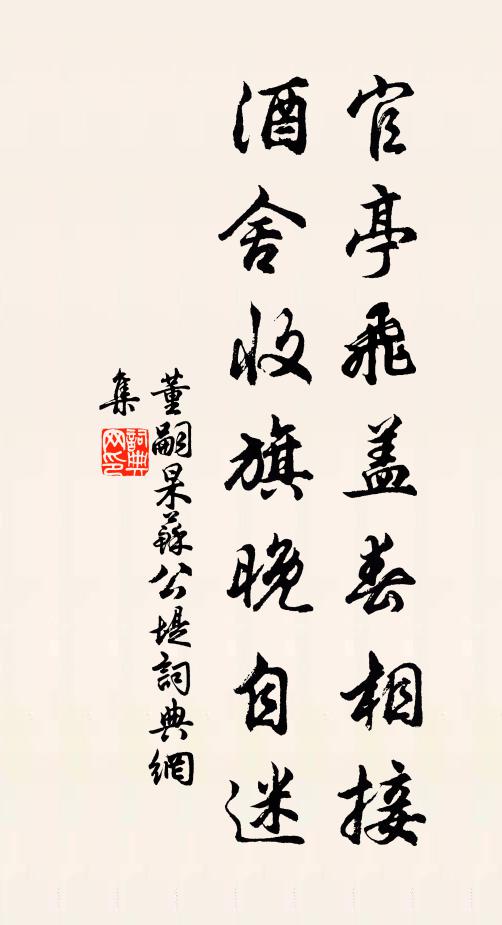 官亭飛盖春相接
酒舍收旗晚自迷
董嗣杲蘇公堤詞典網
集
詞典
网印